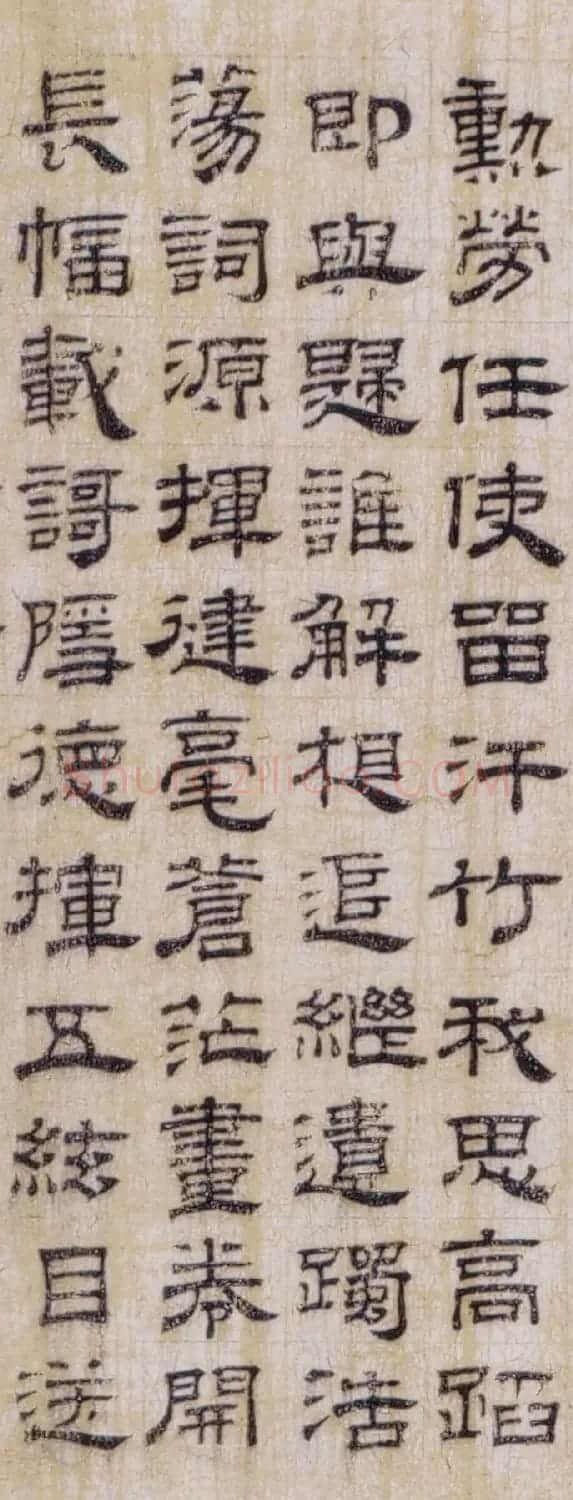 勳勞任使留汗竹我思高蹈
即與歸誰解相追繼遺躅活
蕩詞源揮健毫蒼茫畫卷開
長幅載謌隱德揮五絃目送